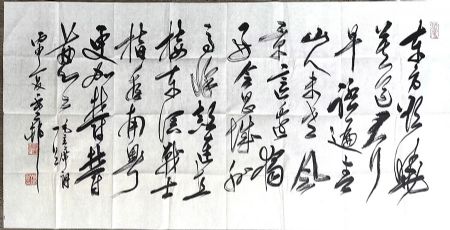 东方欲晓
莫道君行
早踏遍青
山人未老风
景这边独
好会昌城外
高峰颠连直
接东溟战士
指看南粤
更加郁郁
葱葱 毛主席词